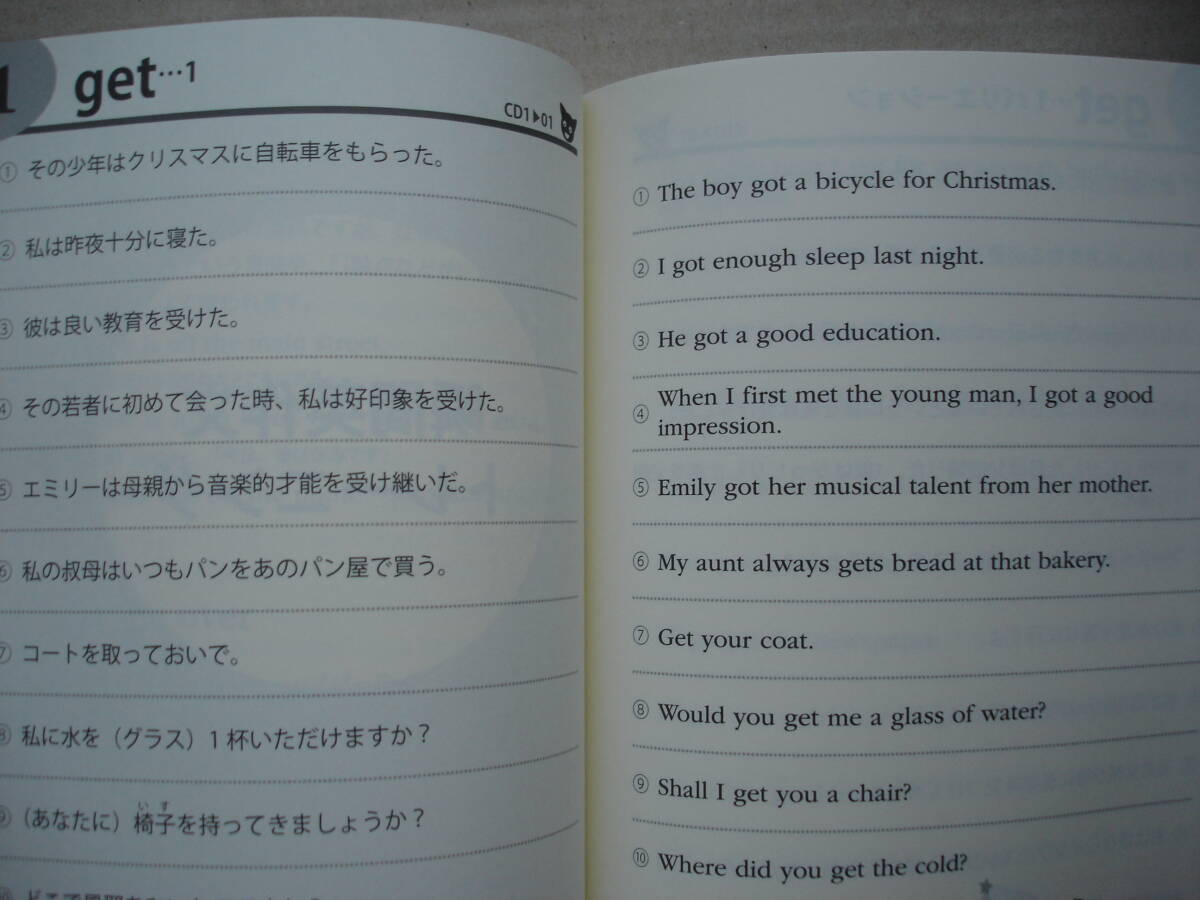 1 get…1
CD1▶01
① その少年はクリスマスに自転車をもらった。
② 私は昨夜十分に寝た。
③ 彼は良い教育を受けた。
④ その若者に初めて会った時、私は好印象を受けた。
⑤ エミリーは母親から音楽的才能を受け継いだ。
⑥ 私の叔母はいつもパンをあのパン屋で買う。
⑦ コートを取っておいで。
⑧ 私に水を（グラス）1杯いただけますか？
いす
⑨ （あなたに）椅子を持ってきましょうか？
① The boy got a bicycle for Christmas.
② I got enough sleep last night.
③ He got a good education.
④ When I first met the young man, I got a good
impression.
⑤ Emily got her musical talent from her mother.
⑥ My aunt always gets bread at that bakery.
⑦ Get your coat.
⑧ Would you get me a glass of water?
⑨ Shall I get you a chair?
⑩ Where did you get the cold?